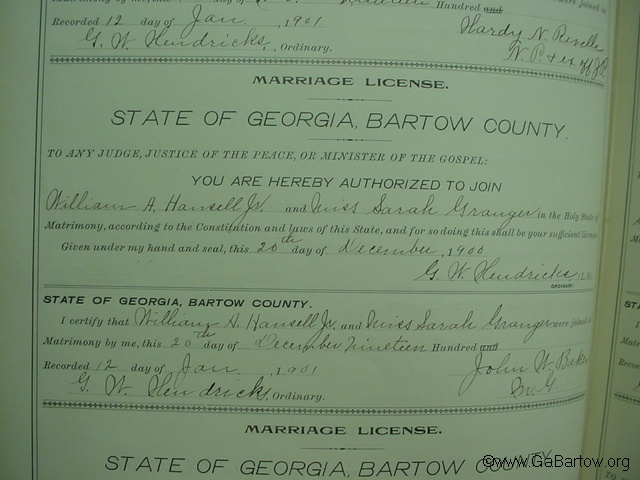 Hundred and
Recorded 12 day of Jan. , 1901
Hardy N. Revelle
G. W. Hendricks, Ordinary.
N. P. & ex off J.P.
MARRIAGE LICENSE.
STATE OF GEORGIA, BARTOW COUNTY.
TO ANY JUDGE, JUSTICE OF THE PEACE, OR MINISTER OF THE GOSPEL:
YOU ARE HEREBY AUTHORIZED TO JOIN
William A. Hansell Jr. and Miss Sarah Granger in the Holy State of
Matrimony, according to the Constitution and laws of this State, and for so doing this shall be your sufficient license.
Given under my hand and seal, this 20th day of December, 1900
G. W. Hendricks,
ORDINARY.
STATE OF GEORGIA, BARTOW COUNTY.
I certify that William A. Hansell Jr. and Miss Sarah Granger were joined in
Matrimony by me, this 20th day of December Nineteen Hundred and
Recorded 12 day of Jan. , 1901
John W. Baker
G. W. Hendricks, Ordinary.
M. G.
MARRIAGE LICENSE.
STATE OF GEORGIA, BARTOW COUNTY.
©www.GaBartow.org